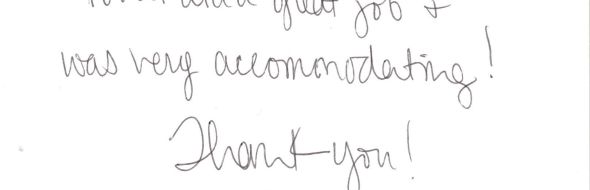 great job +
was very accommodating!
Thank you!